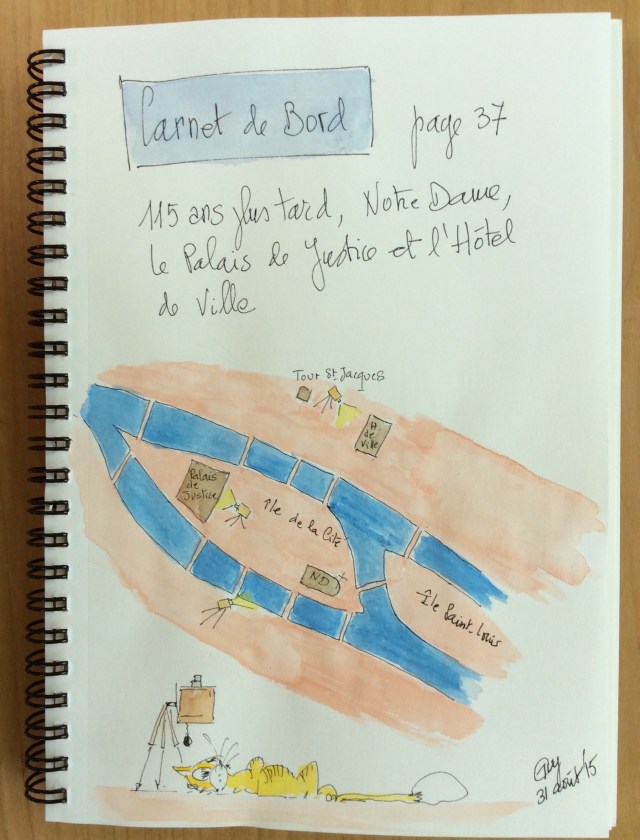 Carnet de Bord
page 37
115 ans plus tard, Notre Dame,
le Palais de Justice et l'Hôtel
de Ville
Tour St Jacques
H
de
Ville
Palais
de
Justice
île de la Cité
ND
Île Saint-Louis
31 août 15